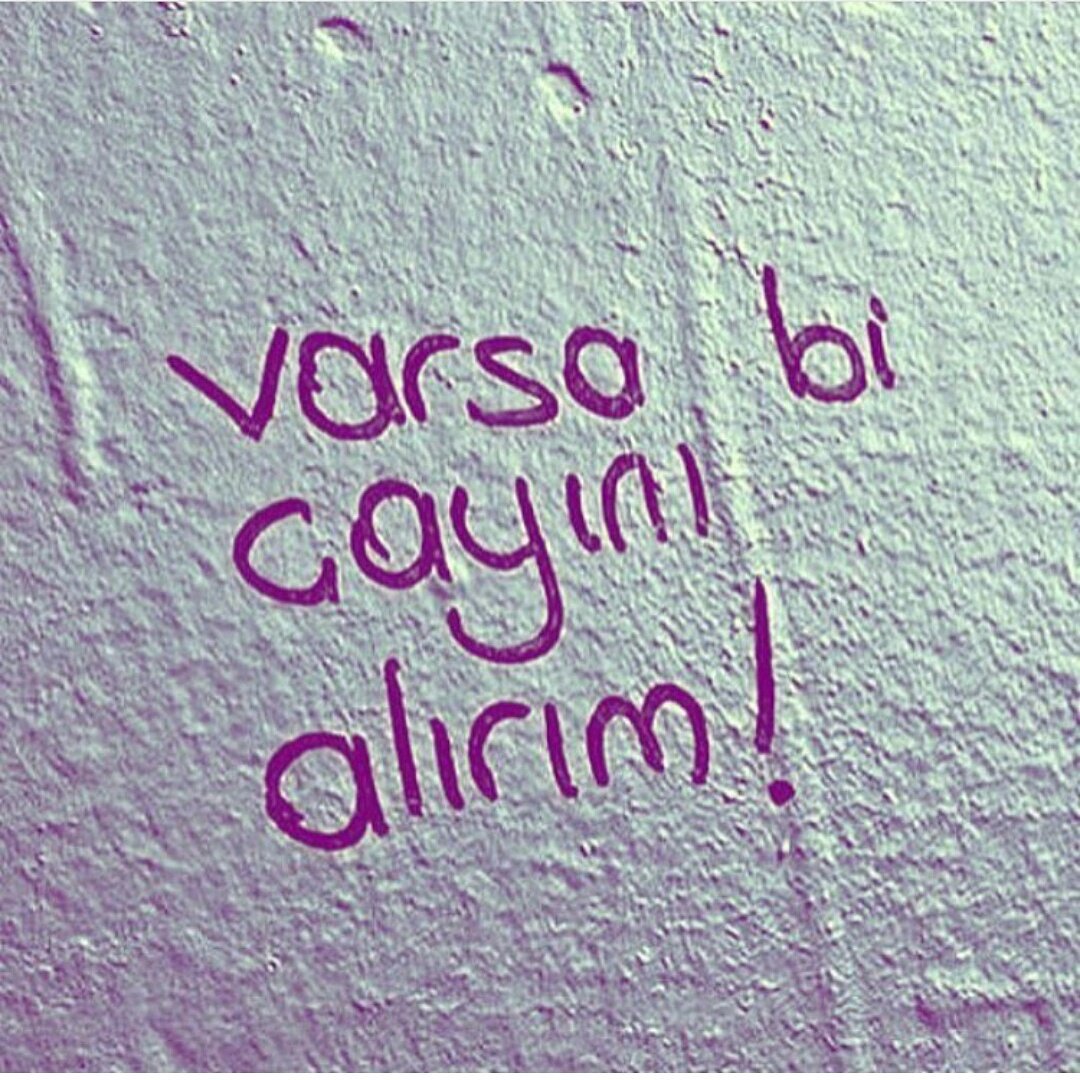 varsa bi
cayını
alırım!